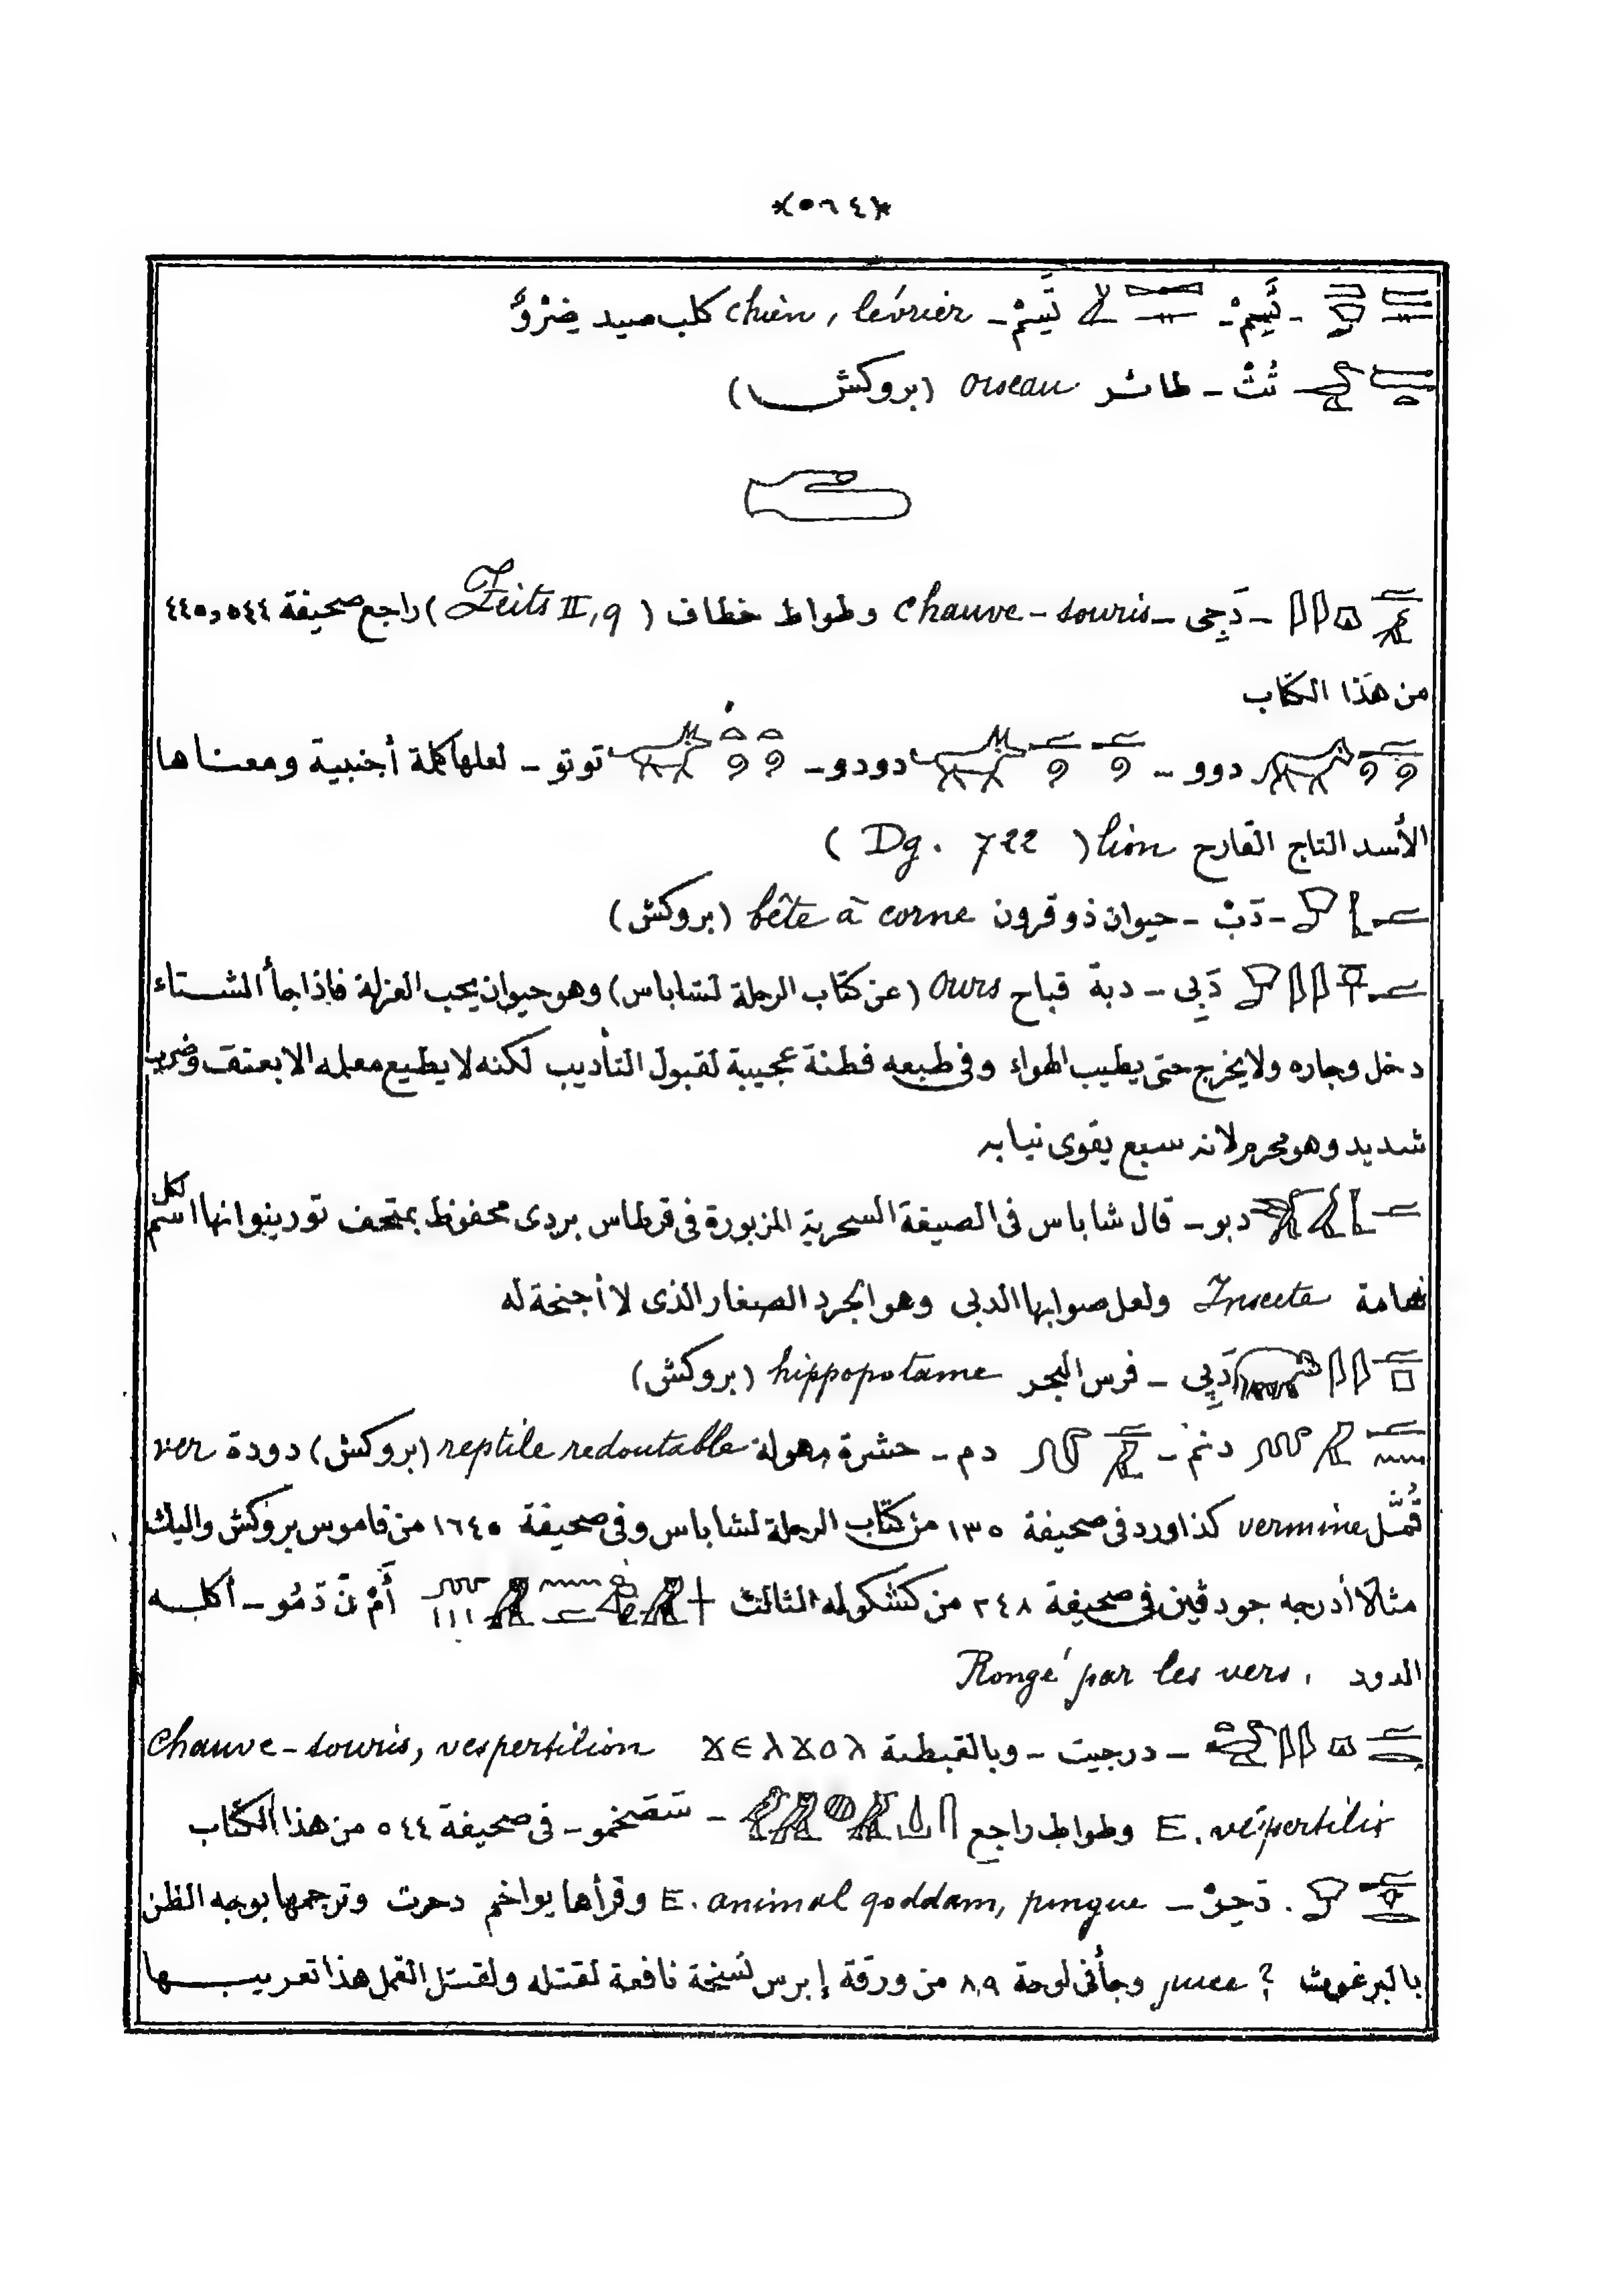 *(٥٦٤)*
- تَسِمْ - تَسِمْ - chien, lévrier كلب صيد ضِرْوٌ
تُثْ - طائر oiseau (بروكش)
- دَجِى - chauve-souris وطواط خطاف (Zeits II, 9) راجع صحيفة ٥٤٤ و ٤٤٥
من هذا الكتاب
دوو - دودو - توتو - لعلها كلمة أجنبية ومعناها
الأسد التاج القارح lion (Dg. 722)
- دَبْ - حيوان ذو قرون bête à corne (بروكش)
دَبِى - دبة قباح ours (عن كتاب الرحلة لشاباس) وهو حيوان يحب العزلة فاذا جأ الشتاء
دخل وجاره ولا يخرج حتى يطيب الهواء وفى طبعه فطنة عجيبة لقبول التأديب لكنه لا يطيع معلمه الا بعنف وضرب
شديد وهو محرم لانه سبع يقوى نيابه
دبو - قال شاباس فى الصيغة السحرية المزبورة فى قرطاس بردى محفوظ بمتحف تورينو انها اسم لكل
هامة Insecte ولعل صوابها الدبى وهو الجرد الصغار الذى لا أجنحة له
دَبِى - فرس البحر hippopotame (بروكش)
دنم - دم - حشرة مهولة reptile redoutable (بروكش) دودة ver
قُمَّل vermine كذا ورد فى صحيفة ١٣٥ من كتاب الرحلة لشاباس وفى صحيفة ١٦٤٥ من قاموس بروكش واليك
مثالا أدرجه جودڤين فى صحيفة ٢٤٨ من كشكوله الثالث أَمْ نْ دَمُو - أكله
الدود Rongé par les vers.
- درجيت - وبالقبطية ϪⲈⲖϪⲞⲖ chauve-souris, vespertilion
E. vespertilis وطواط راجع - سَقَخمو - فى صحيفة ٥٤٤ من هذا الكتاب
دَحِرْ - E. animal qoddam, pingue وقرأها يواخم دحرت وترجمها بوجه الظن
بالبرغوث ? puce وجأ فى لوحة ٨,٩ من ورقة إبرس نسخة نافعة لقتله ولقتل القمل هذا تعريبها